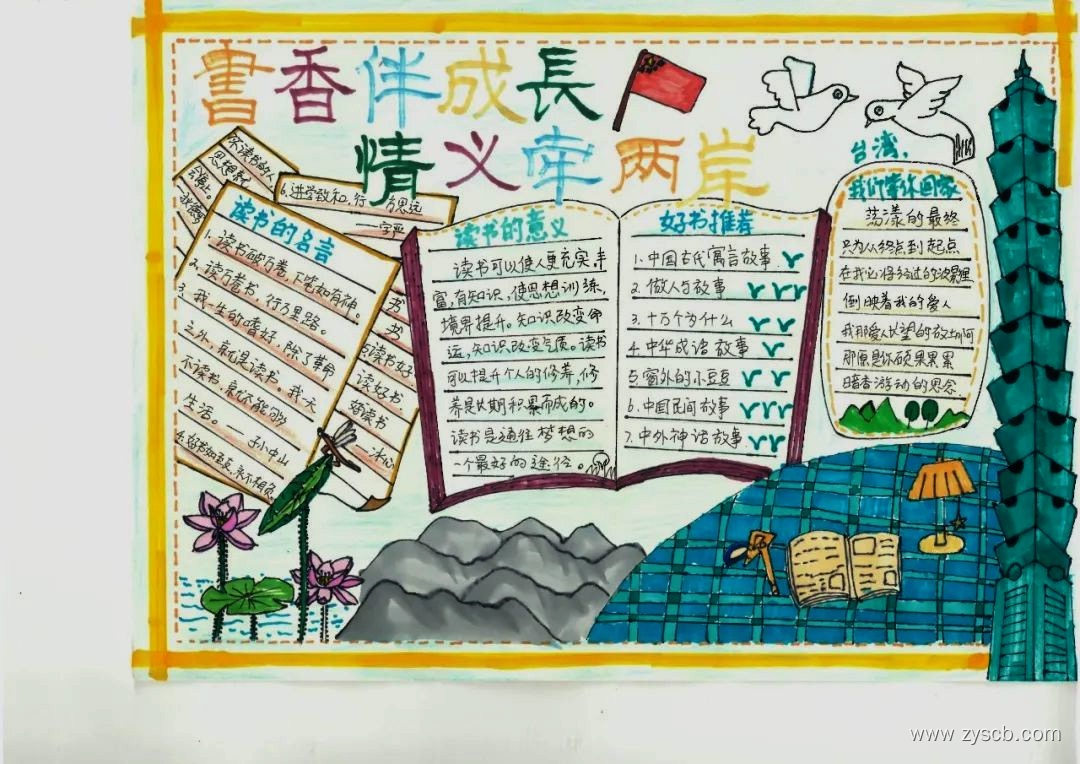 書香伴成長
情义牵两岸
读书的名言
1. 读书破万卷,下笔如有神。
2. 读万卷书,行万里路。
3. 我一生的嗜好,除了革命
之外,就是读书。我一天
不读书,就不能够
生活。——孙中山
6. 进学致和,行 方思远
好读书
读好书
——冰心
读书的意义
读书可以使人更充实丰
富,有知识,使思想训练,
境界提升。知识改变命
运,知识改变气质。读书
可以提升个人的修养,修
养是长期积累而成的。
读书是通往梦想的
一个最好的途径。
好书推荐
1. 中国古代寓言故事
2. 做人与故事
3. 十万个为什么
4. 中华成语故事
5. 窗外的小豆豆
6. 中国民间故事
7. 中外神话故事
台湾,
我们带你回家
荡漾的最终
只为从终点到起点
在我心怀
倒映着我的爱人
我那爱人长望的故土
那原是你硕果累累
暗香浮动的思念
www.zyscb.com